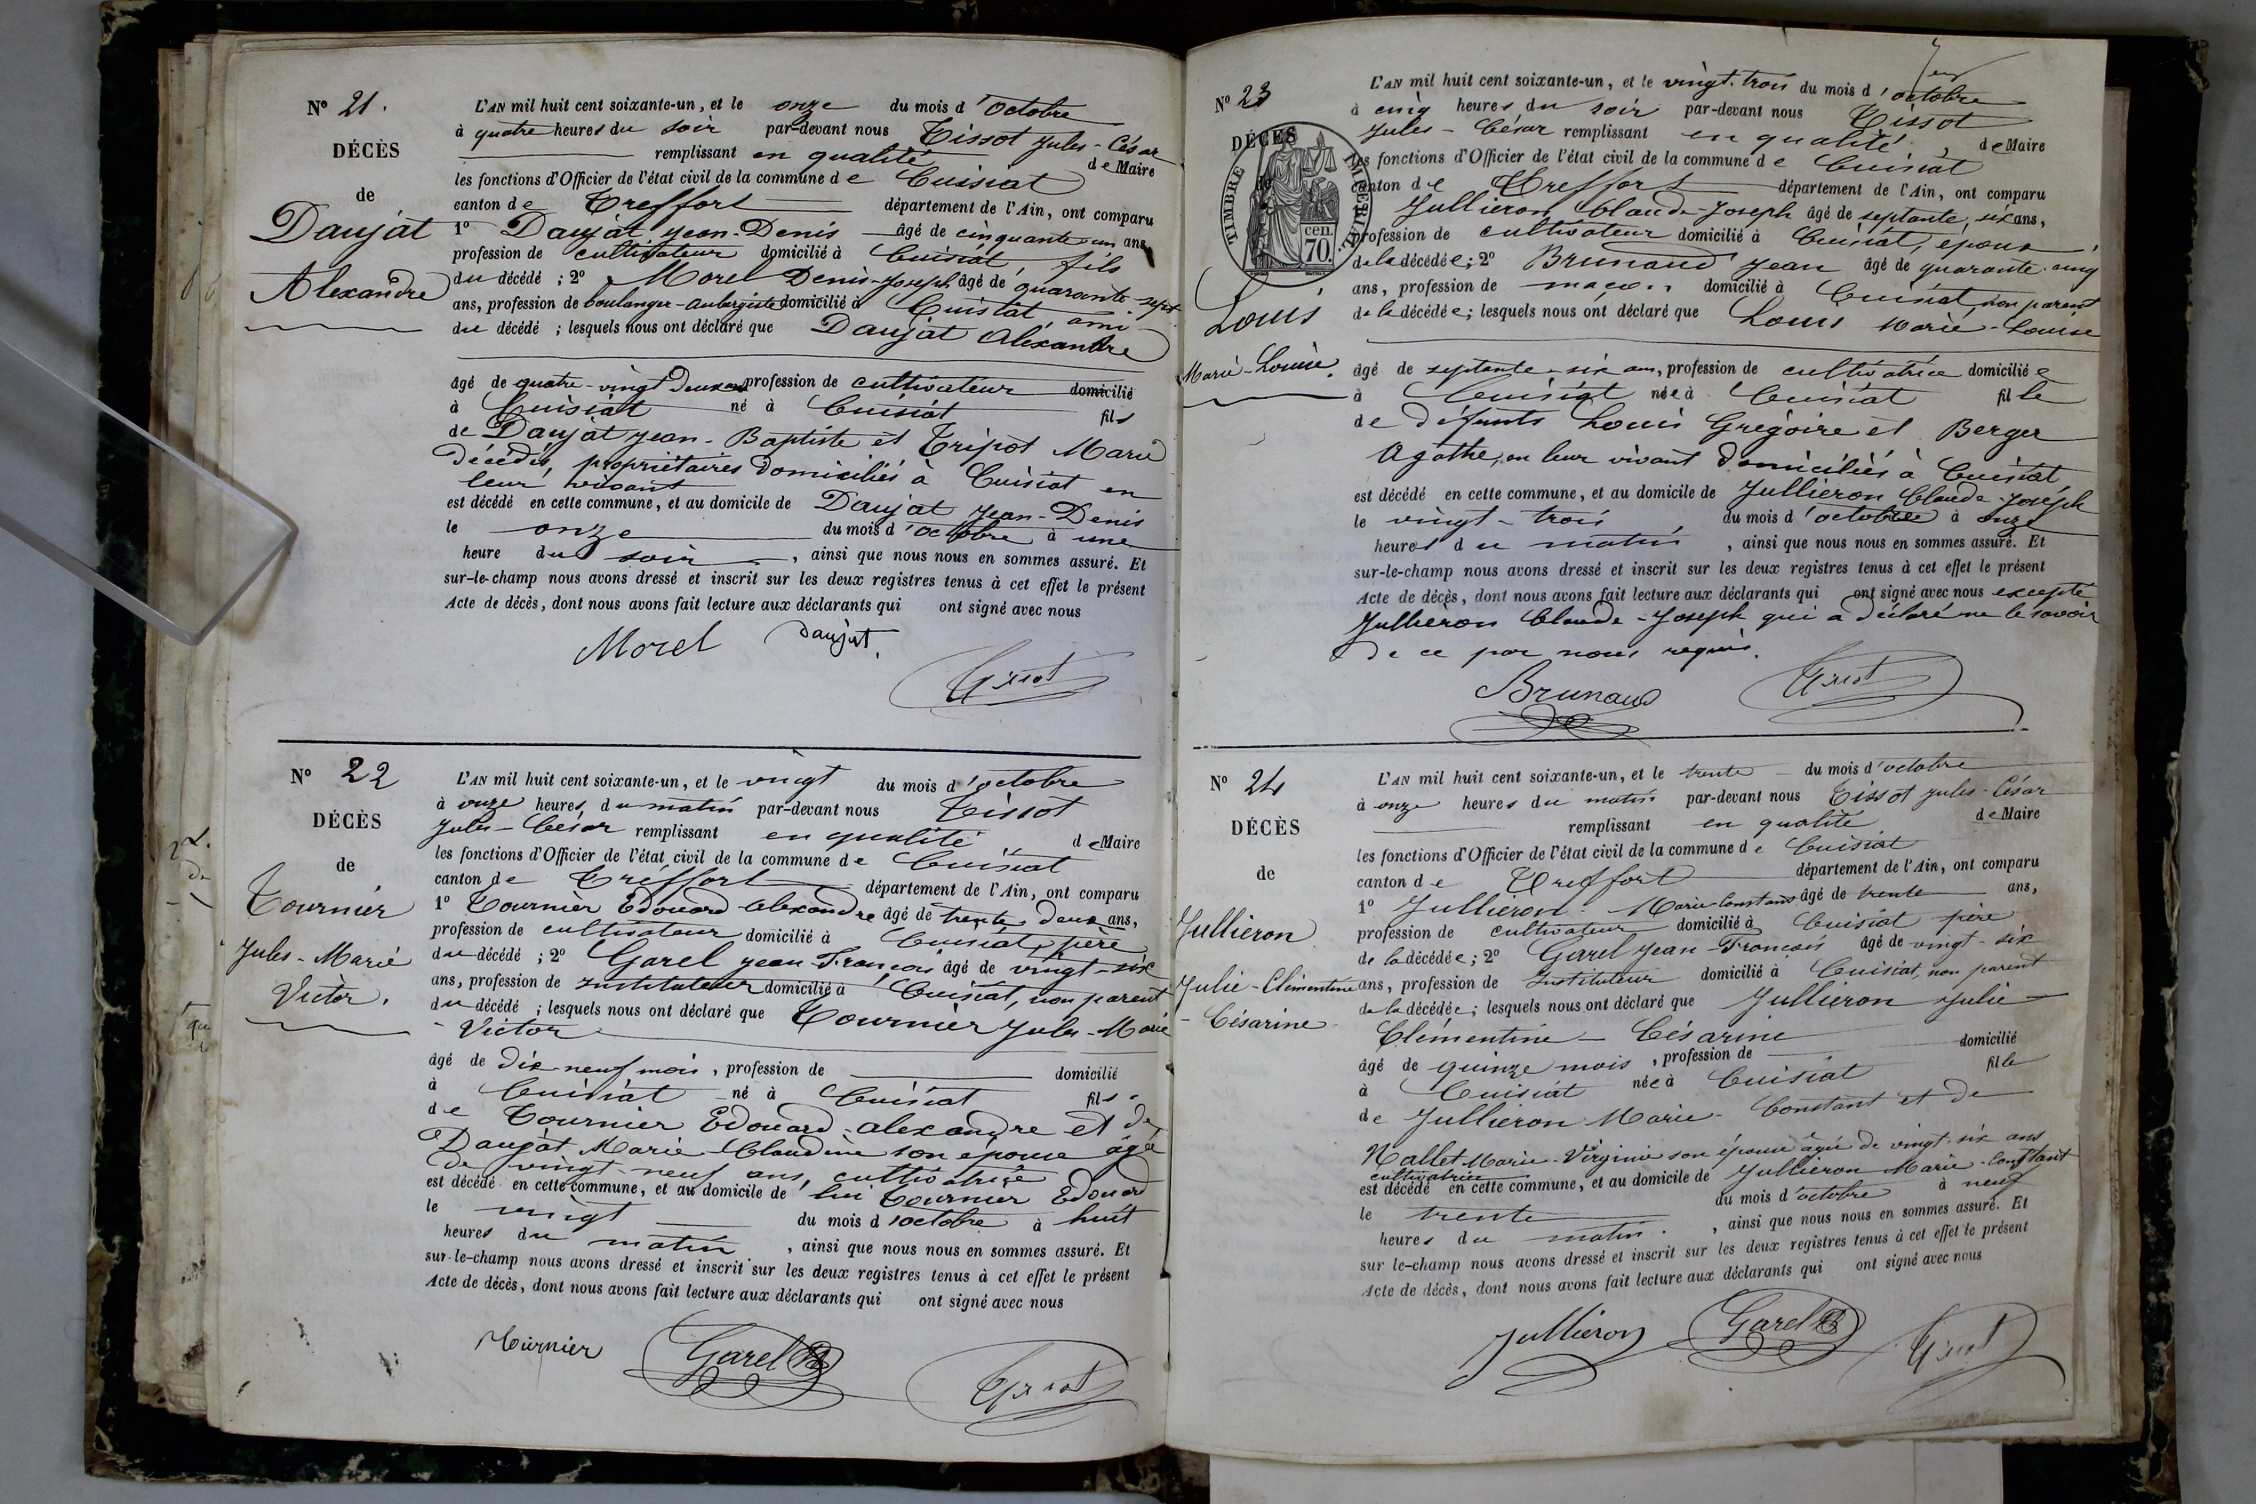 N° 21.
DÉCÈS
de
Daujat
Alexandre
L'AN mil huit cent soixante-un, et le onze du mois d'octobre
à quatre heures du soir par-devant nous Tissot Jules-César
remplissant en qualité de Maire
les fonctions d'Officier de l'état civil de la commune de Cuisiat
canton de Treffort département de l'Ain, ont comparu
1° Daujat Jean-Denis âgé de cinquante-un ans,
profession de cultivateur domicilié à Cuisiat, fils
du décédé ; 2° Morel Denis-Joseph âgé de quarante-sept
ans, profession de boulanger-aubergiste domicilié à Cuisiat, ami
du décédé ; lesquels nous ont déclaré que Daujat Alexandre
âgé de quatre-vingt deux ans profession de cultivateur domicilié
à Cuisiat né à Cuisiat fils
de Daujat Jean-Baptiste et Tripot Marie
décédés, propriétaires domiciliés à Cuisiat en
leur vivant
est décédé en cette commune, et au domicile de Daujat Jean-Denis
le onze du mois d'octobre à une
heure du soir, ainsi que nous nous en sommes assuré. Et
sur-le-champ nous avons dressé et inscrit sur les deux registres tenus à cet effet le présent
Acte de décès, dont nous avons fait lecture aux déclarants qui ont signé avec nous
Morel Daujat.
Tissot
N° 22
DÉCÈS
de
Tournier
Jules-Marie
Victor.
L'AN mil huit cent soixante-un, et le vingt du mois d'octobre
à onze heures du matin par-devant nous Tissot
Jules-César remplissant en qualité de Maire
les fonctions d'Officier de l'état civil de la commune de Cuisiat
canton de Treffort département de l'Ain, ont comparu
1° Tournier Edouard alexandre âgé de trente-deux ans,
profession de cultivateur domicilié à Cuisiat, père
du décédé ; 2° Garel Jean-François âgé de vingt-six
ans, profession de Instituteur domicilié à Cuisiat, non parent
du décédé ; lesquels nous ont déclaré que Tournier Jules-Marie
-Victor
âgé de dix neuf mois, profession de domicilié
à Cuisiat né à Cuisiat fils
de Tournier Edouard-alexandre et de
Daujat Marie Claudine son épouse âgée
de vingt-neuf ans, cultivatrice
est décédé en cette commune, et au domicile de lui Tournier Edouard
le vingt du mois d'octobre à huit
heures du matin, ainsi que nous nous en sommes assuré. Et
sur-le-champ nous avons dressé et inscrit sur les deux registres tenus à cet effet le présent
Acte de décès, dont nous avons fait lecture aux déclarants qui ont signé avec nous
Tournier Garel
Tissot
N° 23
DÉCÈS
de
TIMBRE IMPERIAL
cen.
70.
Louis
Marie-Louise.
L'AN mil huit cent soixante-un, et le vingt-trois du mois d'octobre
à cinq heures du soir par-devant nous Tissot
Jules-César remplissant en qualité, de Maire
les fonctions d'Officier de l'état civil de la commune de Cuisiat
canton de Treffort département de l'Ain, ont comparu
Jullieron Claude-Joseph âgé de septante-six ans,
profession de cultivateur domicilié à Cuisiat, époux
de la décédée ; 2° Brunaud Jean âgé de quarante-cinq
ans, profession de maçon domicilié à Cuisiat, non parent
de la décédée ; lesquels nous ont déclaré que Louis Marie-Louise
âgé de septante-six ans, profession de cultivatrice domiciliée
à Cuisiat née à Cuisiat fille
de défunts Louis Grégoire et Berger
Agathe, en leur vivant domiciliés à Cuisiat
est décédé en cette commune, et au domicile de Jullieron Claude-Joseph
le vingt-trois du mois d'octobre à onze
heures du matin, ainsi que nous nous en sommes assuré. Et
sur-le-champ nous avons dressé et inscrit sur les deux registres tenus à cet effet le présent
Acte de décès, dont nous avons fait lecture aux déclarants qui ont signé avec nous excepté
Jullieron Claude-Joseph qui a déclaré ne le savoir
de ce par nous requis.
Brunaud Tissot
N° 24
DÉCÈS
de
Jullieron
Julie-Clémentine
-Césarine
L'AN mil huit cent soixante-un, et le trente du mois d'octobre
à onze heures du matin par-devant nous Tissot Jules-César
remplissant en qualité de Maire
les fonctions d'Officier de l'état civil de la commune de Cuisiat
canton de Treffort département de l'Ain, ont comparu
1° Jullieron Marie-Constant âgé de trente ans,
profession de cultivateur domicilié à Cuisiat père
de la décédée ; 2° Garel Jean-François âgé de vingt-six
ans, profession de Instituteur domicilié à Cuisiat, non parent
de la décédée ; lesquels nous ont déclaré que Jullieron Julie-
Clémentine-Césarine
âgé de quinze mois, profession de domicilié
à Cuisiat née à Cuisiat fille
de Jullieron Marie-Constant et de
Nallet Marie-Virginie son épouse âgée de vingt-six ans
cultivatrice
est décédé en cette commune, et au domicile de Jullieron Marie-Constant
le trente du mois d'octobre à neuf
heures du matin, ainsi que nous nous en sommes assuré. Et
sur le-champ nous avons dressé et inscrit sur les deux registres tenus à cet effet le présent
Acte de décès, dont nous avons fait lecture aux déclarants qui ont signé avec nous
Jullieron Garel Tissot